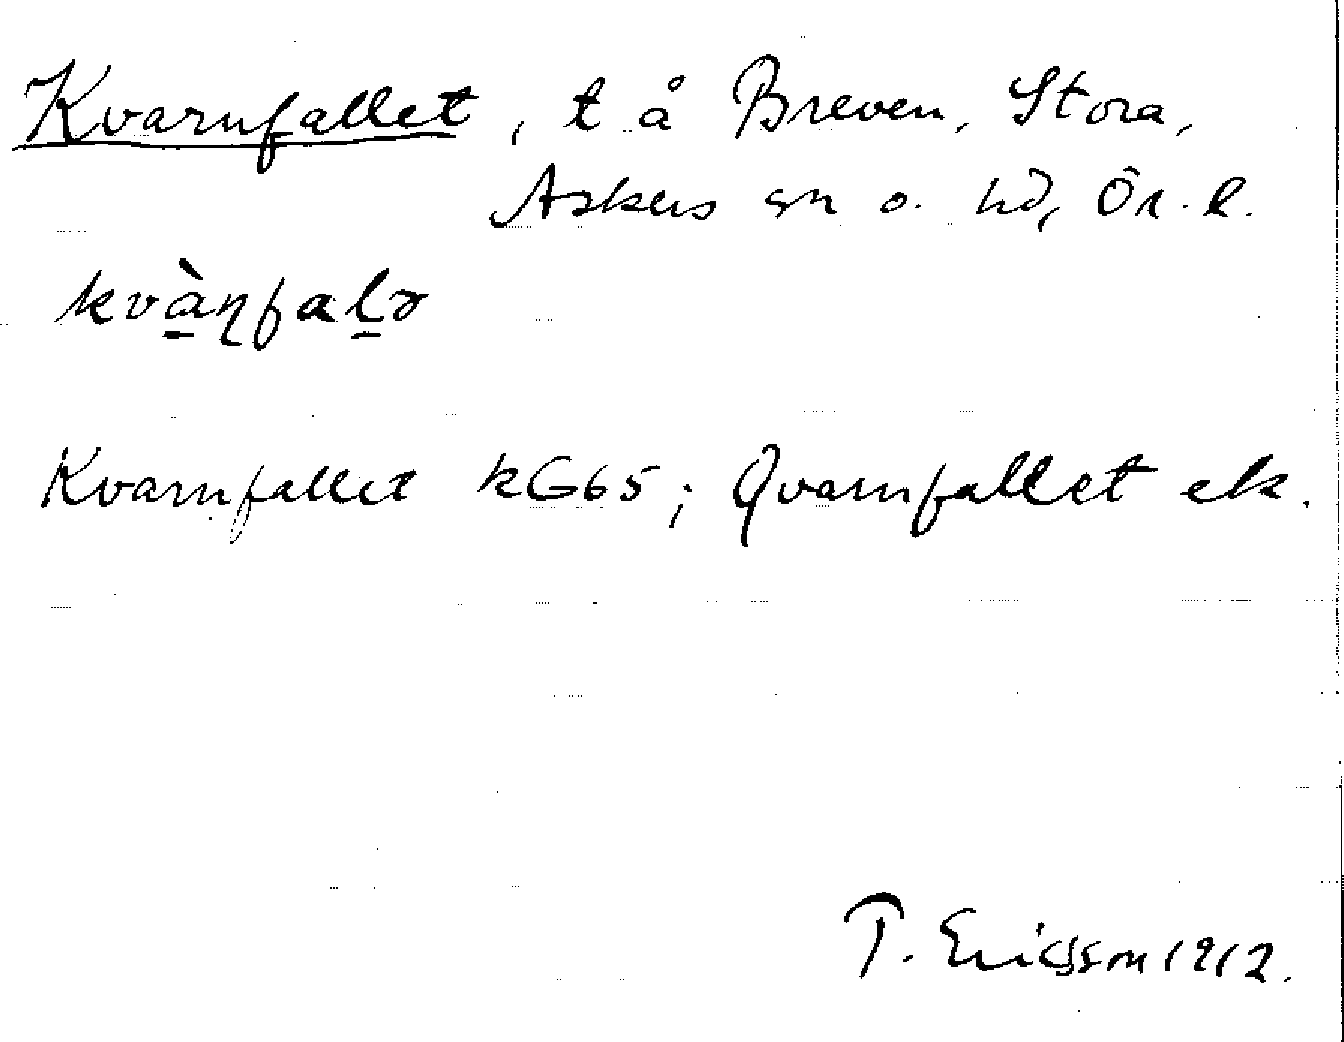 Kvarnfallet, t å Breven, Stora,
Askers sn o. hd, Ör. l.
kvàɳfalə
Kvarnfallet kG65; Qvarnfallet ek.
T. Ericsson 1912.